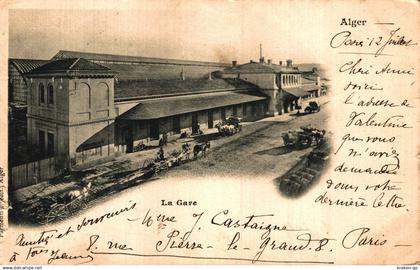 Alger
Paris 12 Juillet
Cher Aimé
voici
l'adresse de
Valentine
que vous
m'avez
demandée
dans votre
dernière lettre
La Gare
Amitiés et souvenirs
à tous
Jeanne
Mme J Castaigne
8 rue Pierre-le-Grand 8 Paris